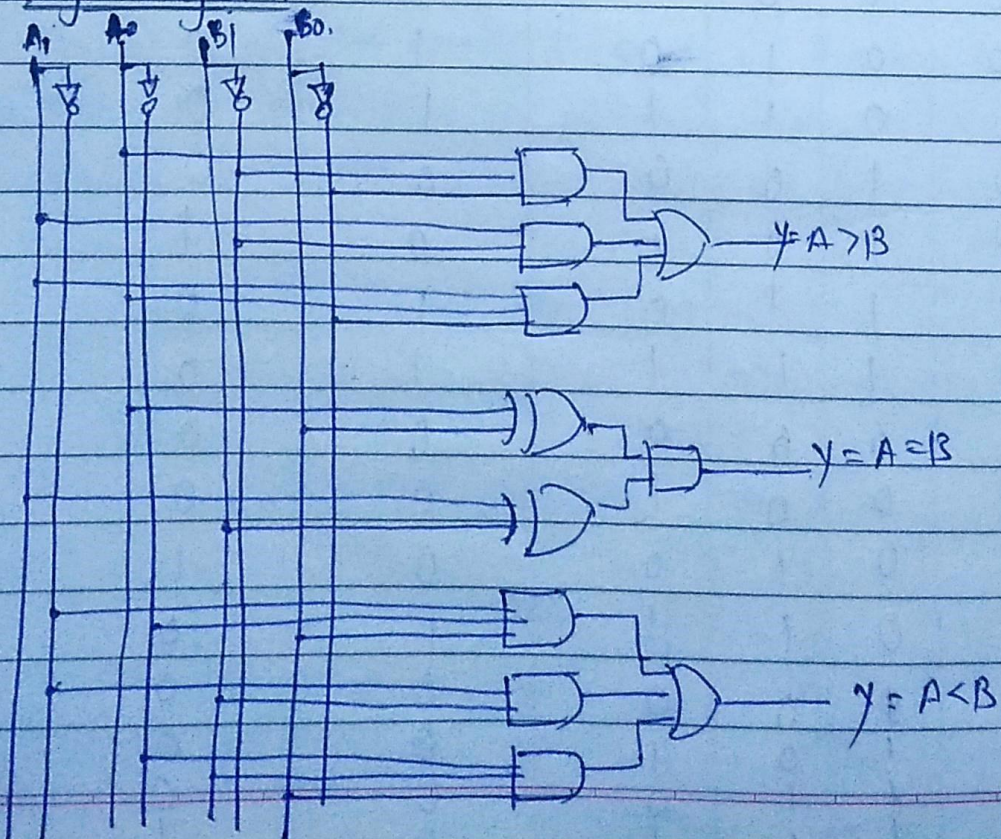 A1 A0 B1 B0.
Y = A > B
Y = A = B
Y = A < B